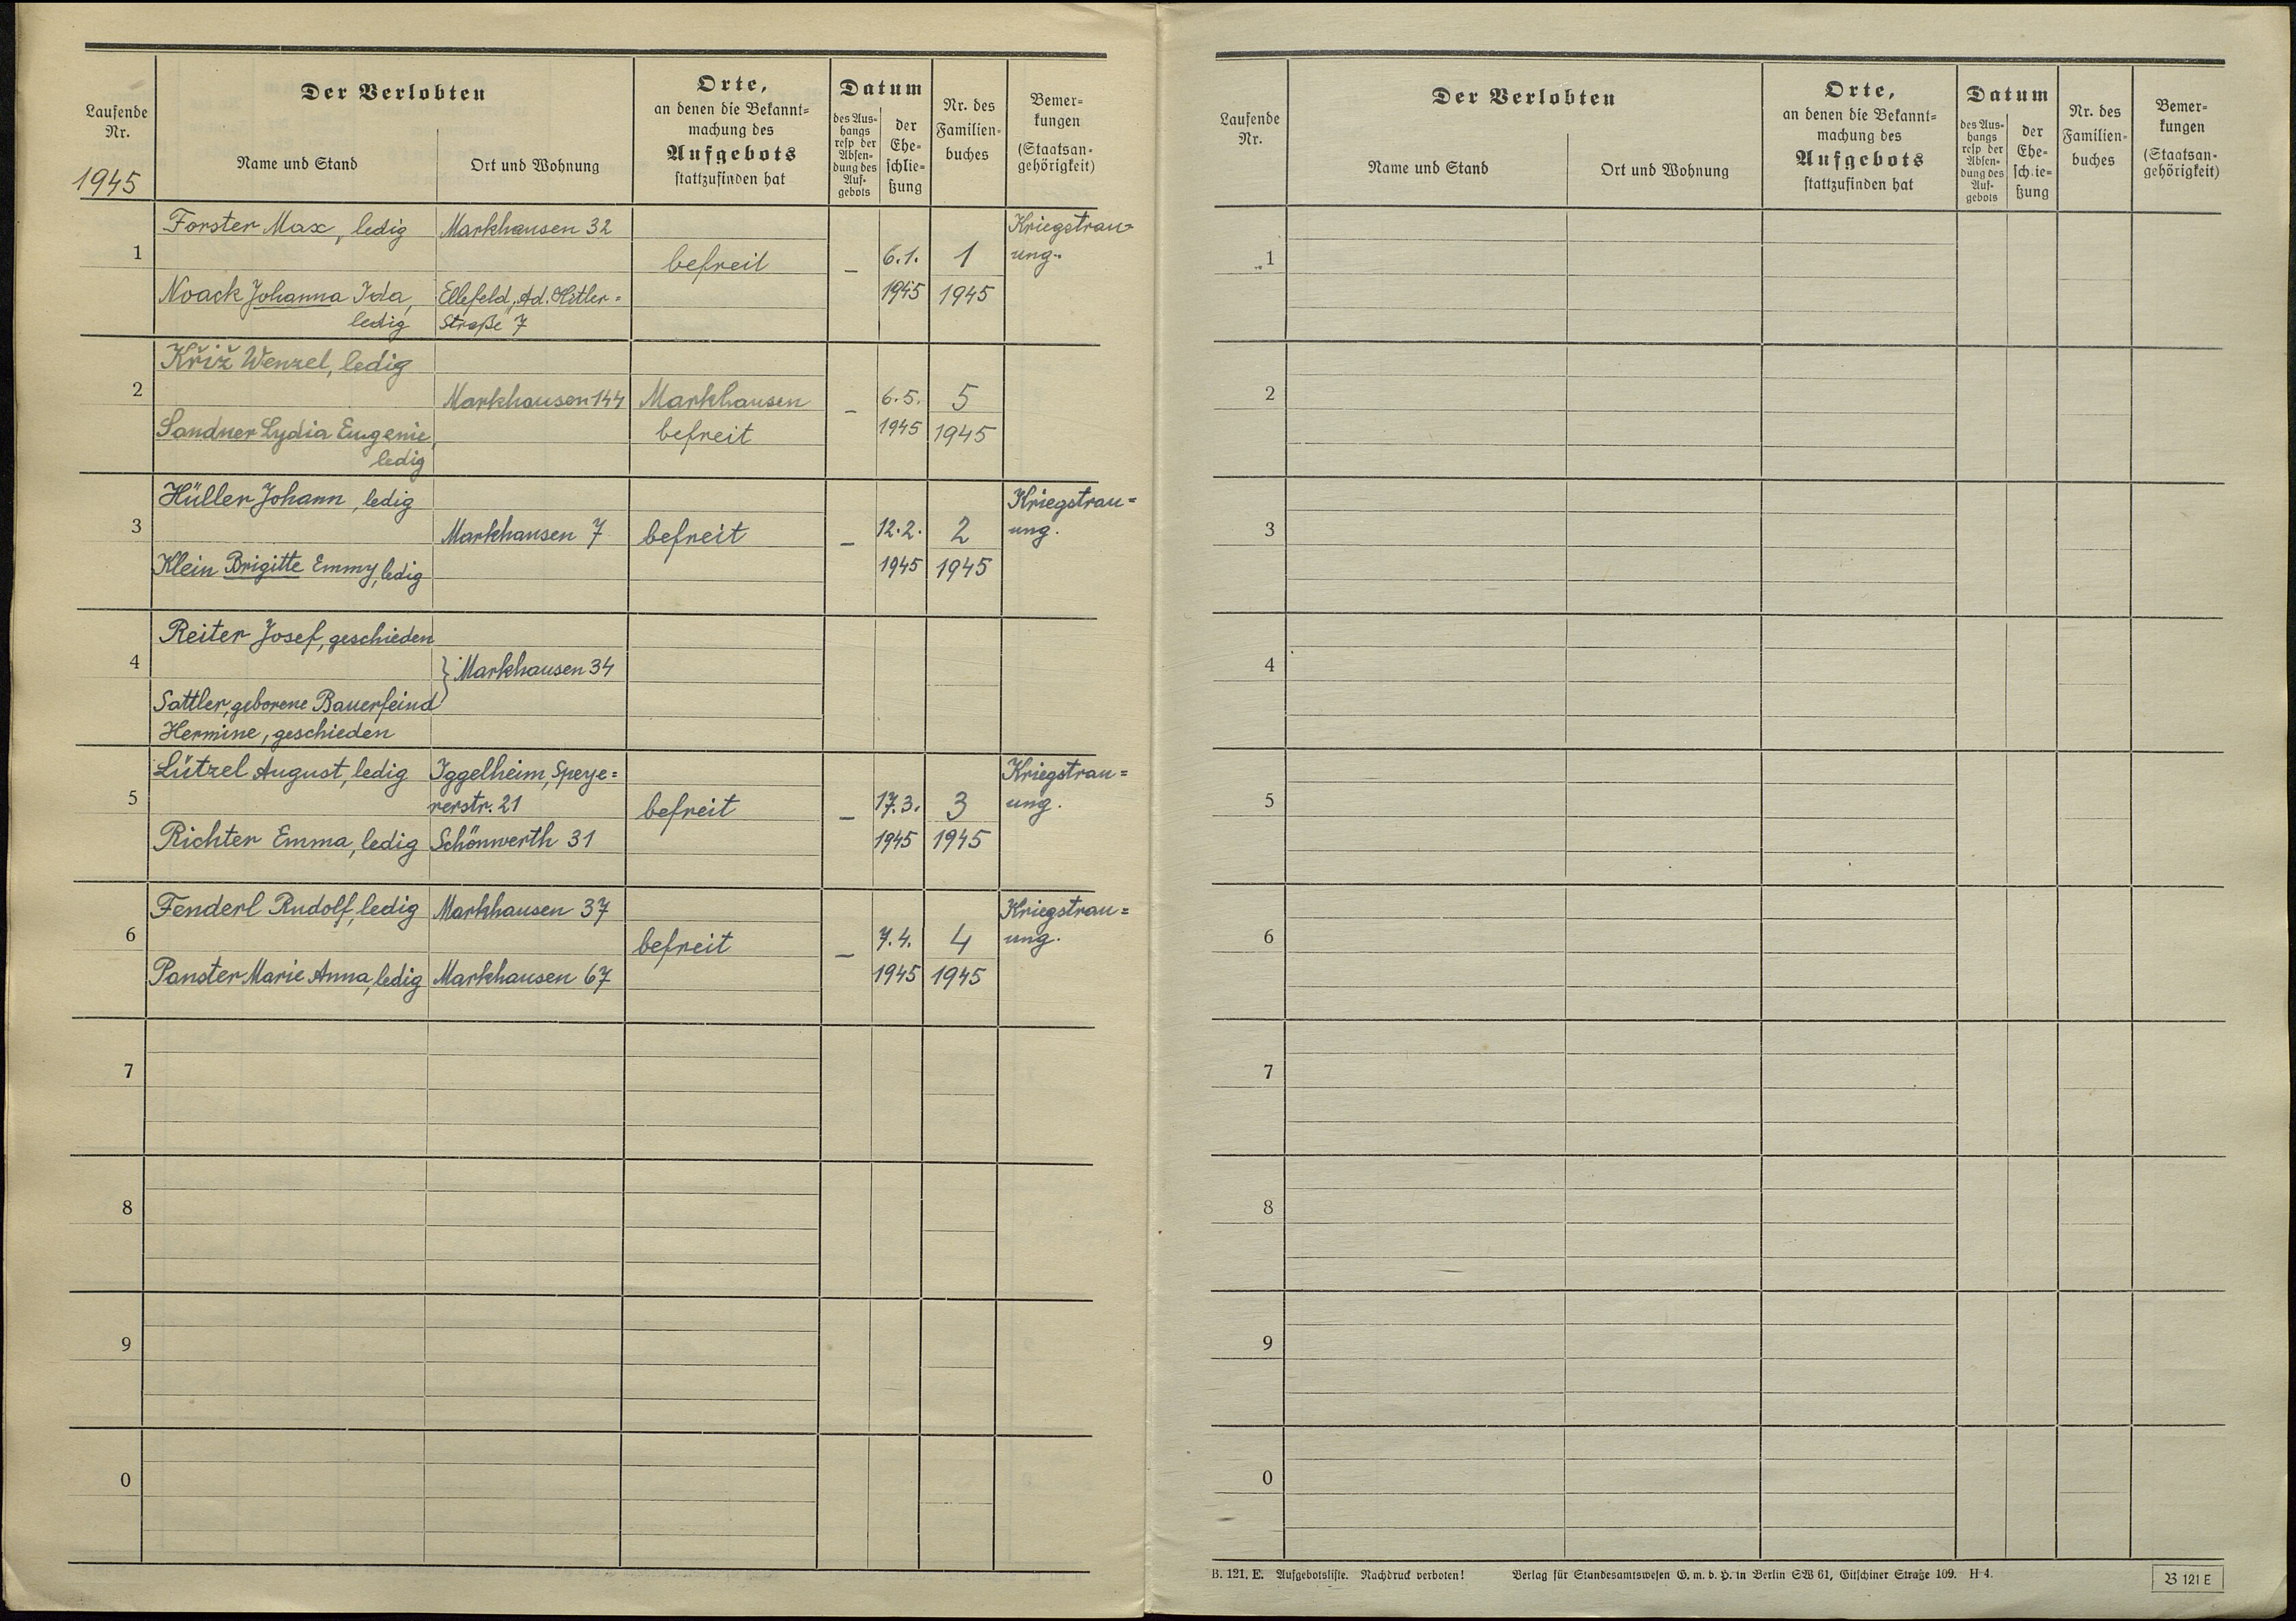 Laufende
Nr.
1945
Der Verlobten
Name und Stand
Ort und Wohnung
Orte,
an denen die Bekannt-
machung des
Aufgebots
stattzufinden hat
Datum
des Aus-
hangs
resp der
Absen-
dung des
Auf-
gebots
der
Ehe-
schlie-
ßung
Nr. des
Familien-
buches
Bemer-
kungen
(Staatsan-
gehörigkeit)
1
Forster Max, ledig
Noack Johanna Ida,
ledig
Markhausen 32
Ellefeld, „Ad. Hitler=
Straße" 7
befreit
–
6.1.
1945
1
1945
Kriegstrau=
ung.
2
Křiž Wenzel, ledig
Sandner Lydia Eugenie,
ledig
Markhausen 144
Markhausen
befreit
–
6.5.
1945
5
1945
3
Hüller Johann, ledig
Klein Brigitte Emmy, ledig
Markhausen 7
befreit
–
12.2.
1945
2
1945
Kriegstrau=
ung.
4
Reiter Josef, geschieden
Sattler, geborene Bauerfeind
Hermine, geschieden
} Markhausen 34
5
Lützel August, ledig
Richter Emma, ledig
Iggelheim, Speye=
rerstr. 21
Schönwerth 31
befreit
–
17.3.
1945
3
1945
Kriegstrau=
ung.
6
Fenderl Rudolf, ledig
Panster Marie Anna, ledig
Markhausen 37
Markhausen 67
befreit
–
7.4.
1945
4
1945
Kriegstrau=
ung.
7
8
9
0
Laufende
Nr.
Der Verlobten
Name und Stand
Ort und Wohnung
Orte,
an denen die Bekannt-
machung des
Aufgebots
stattzufinden hat
Datum
des Aus-
hangs
resp der
Absen-
dung des
Auf-
gebots
der
Ehe-
schlie-
ßung
Nr. des
Familien-
buches
Bemer-
kungen
(Staatsan-
gehörigkeit)
1
2
3
4
5
6
7
8
9
0
B. 121. E. Aufgebotsliste. Nachdruck verboten! Verlag für Standesamtswesen G. m. b. H. in Berlin SW 61, Gitschiner Straße 109. H 4.
B 121 E